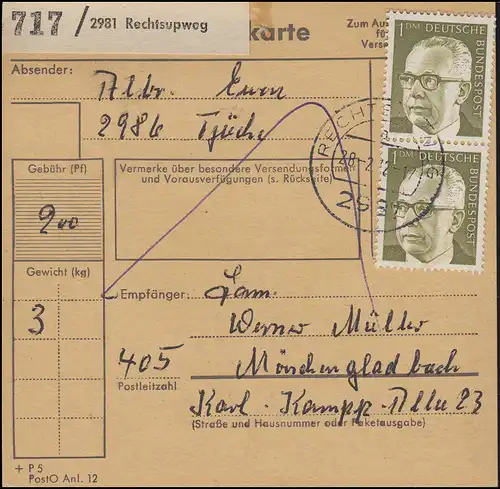 717 / 2981 Rechtsupweg
karte
Zum Au
fü
Verse
1 DM DEUTSCHE BUNDESPOST
Absender: Albr. Even
2986 Tjüche
RECHTSUPWEG
28.-2.72-17
298
1 DM DEUTSCHE BUNDESPOST
Gebühr (Pf)
200
Vermerke über besondere Versendungsformen
und Vorausverfügungen (s. Rückseite)
Gewicht (kg)
3
Empfänger: Fam.
Werner Müller
405 Mönchengladbach
Postleitzahl
Karl-Kampp-Allee 23
(Straße und Hausnummer oder Paketausgabe)
+ P 5
PostO Anl. 12